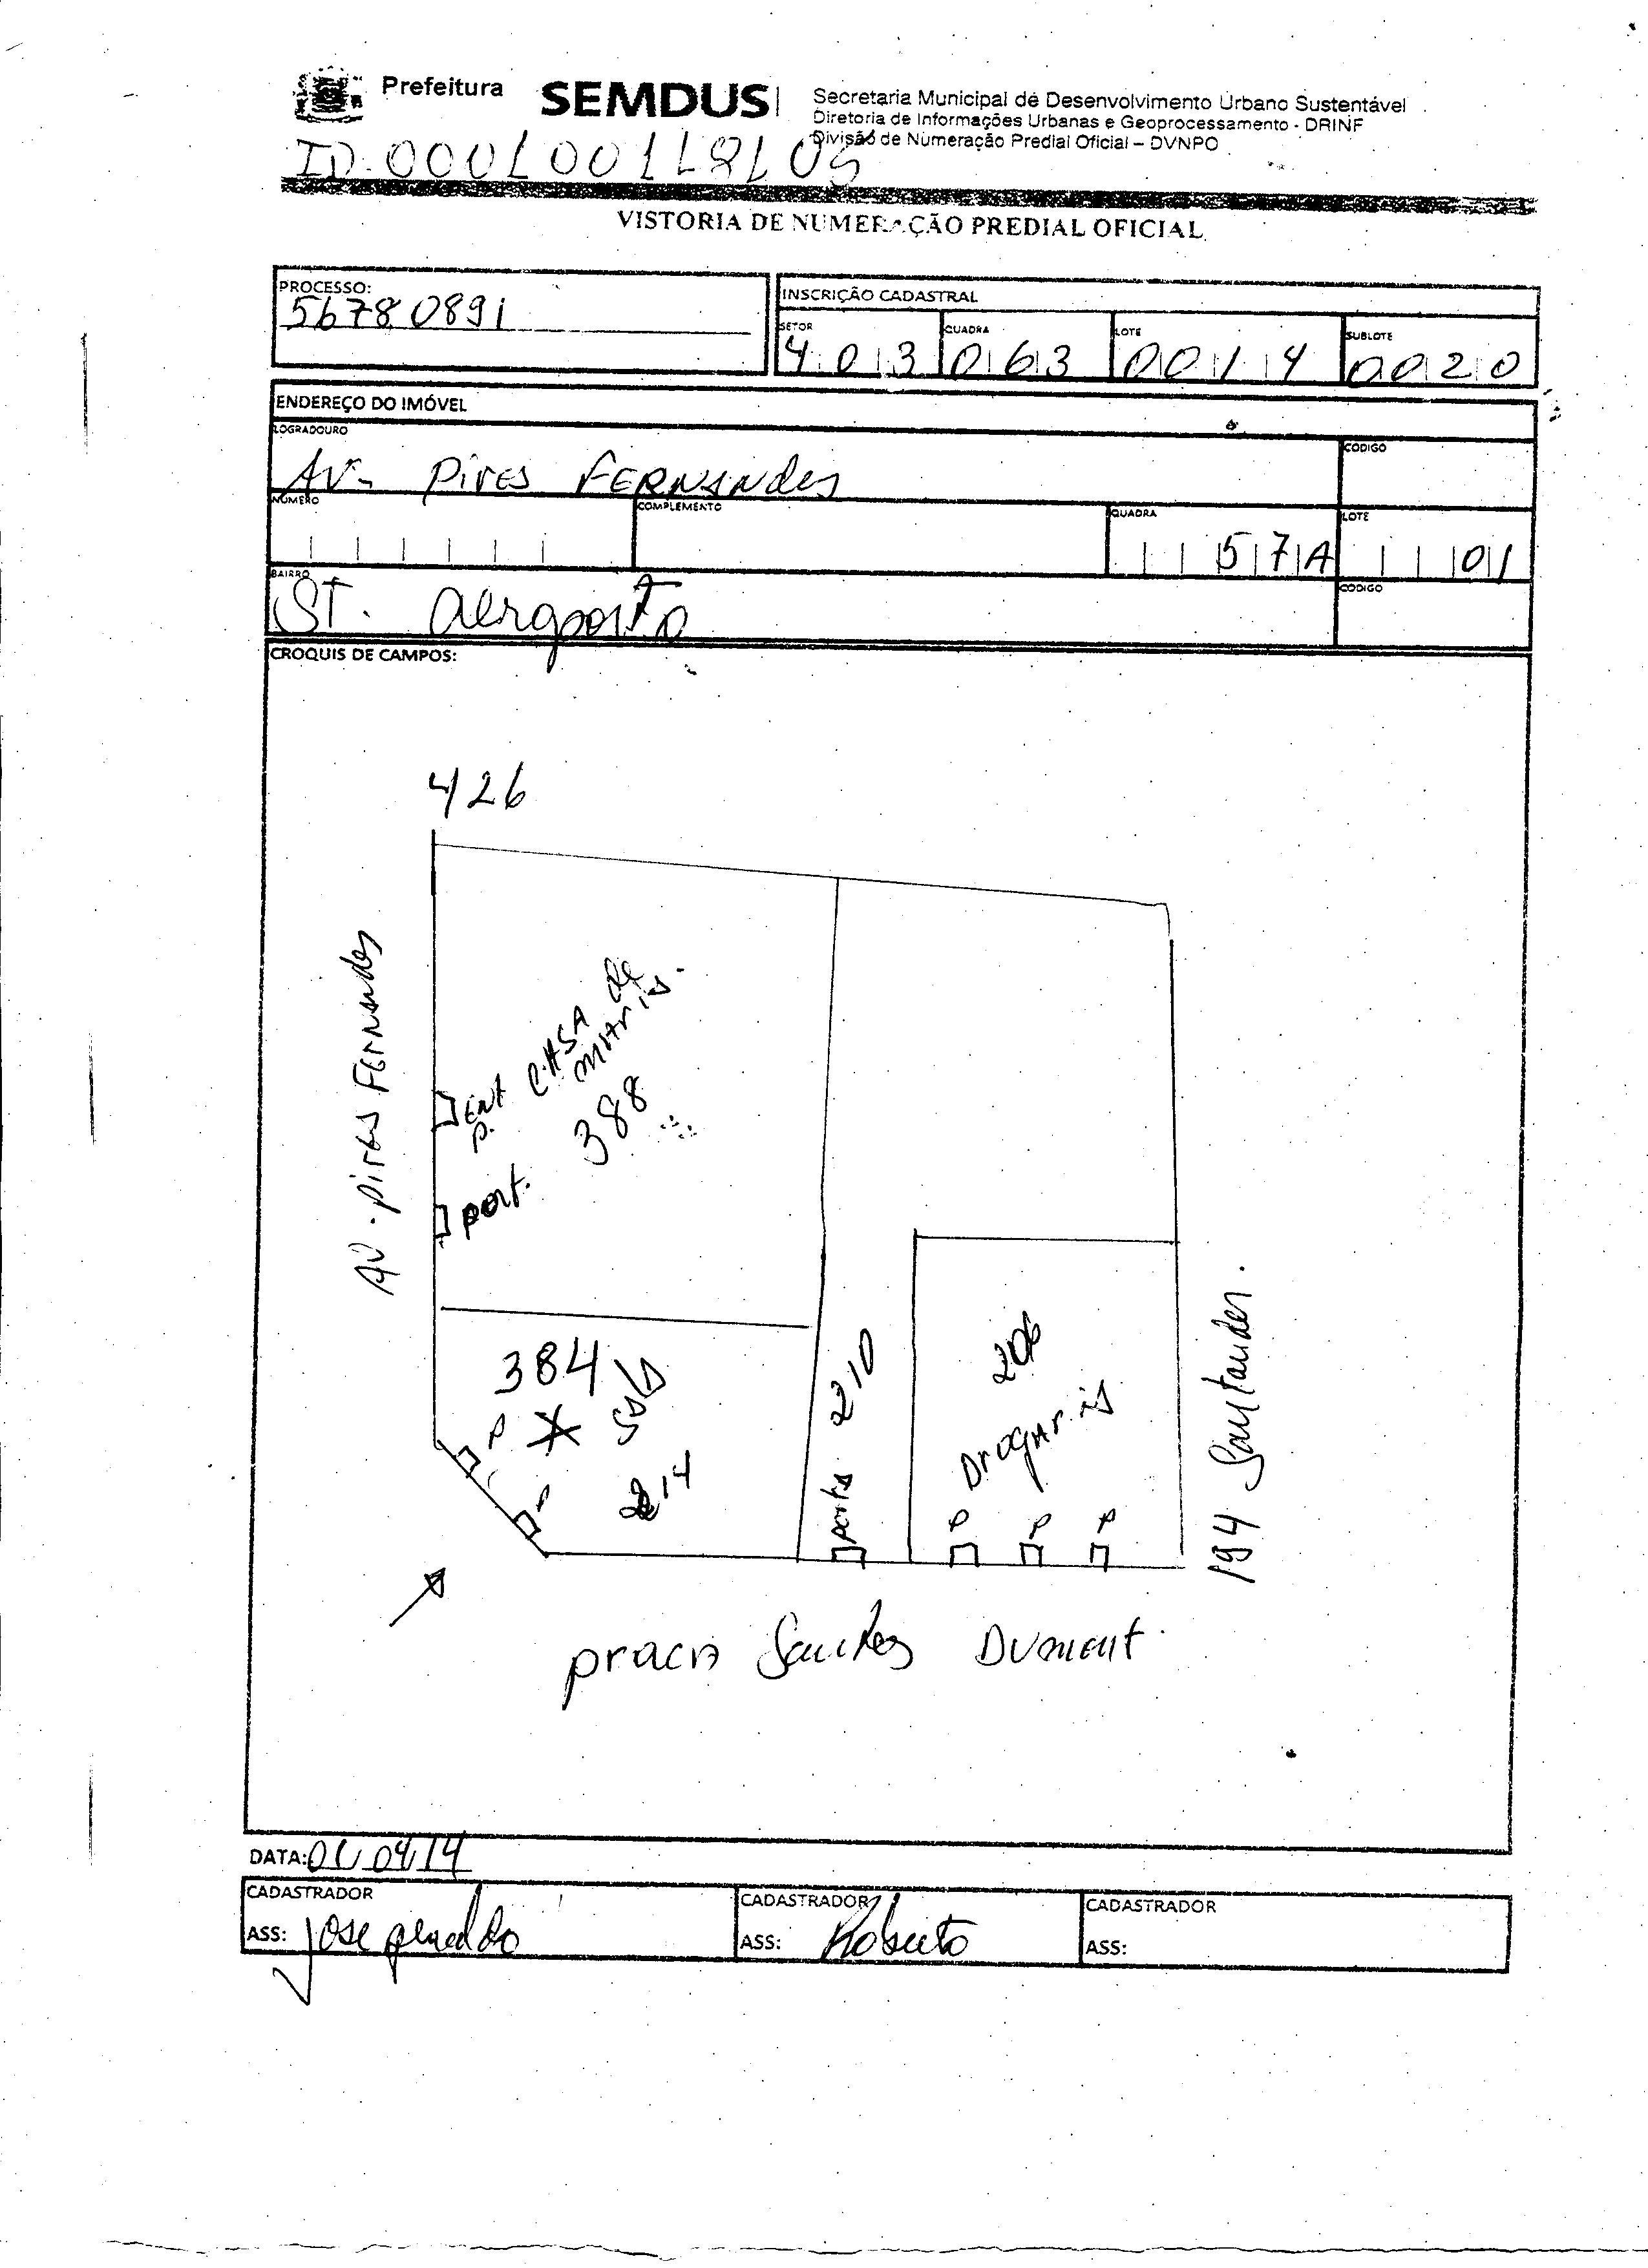 Prefeitura
SEMDUS
Secretaria Municipal de Desenvolvimento Urbano Sustentável
Diretoria de Informações Urbanas e Geoprocessamento - DRINF
Divisão de Numeração Predial Oficial – DVNPO
VISTORIA DE NUMERAÇÃO PREDIAL OFICIAL
PROCESSO:
56780891
INSCRIÇÃO CADASTRAL
SETOR QUADRA LOTE SUBLOTE
403 063 0014 0020
ENDEREÇO DO IMÓVEL
LOGRADOURO CODIGO
AV- Pires FERNANdes
NÚMERO COMPLEMENTO QUADRA LOTE
57A 01
BAIRRO CODIGO
ST. aeroporto
CROQUIS DE CAMPOS:
426
AV. pires FerNANdes
Ent CASA de
p.
388
port.
384
X Sala
P
P
214
porta 210
206
Drogaria
P P P
194 Santander.
praca Santos Dumont
DATA: 01/04/14
CADASTRADOR CADASTRADOR CADASTRADOR
ASS: Jose geraldo ASS: Roberto ASS: